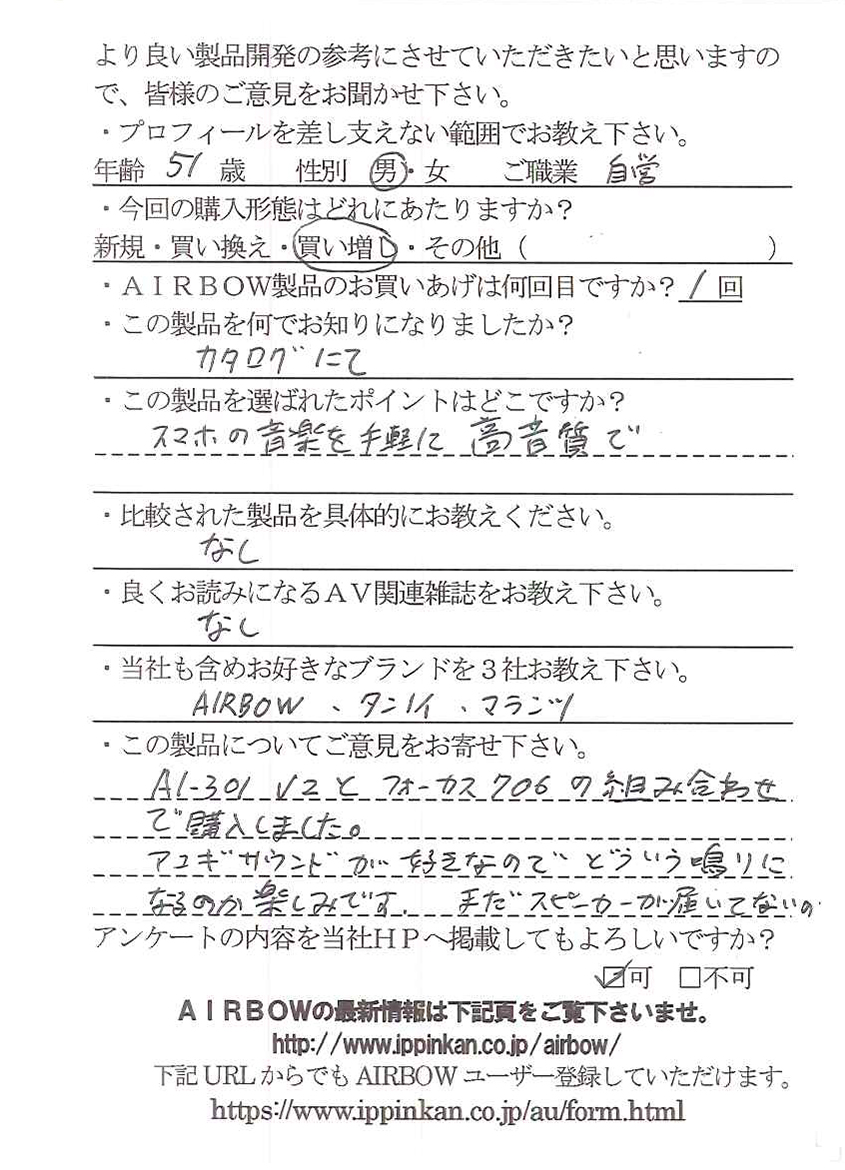 より良い製品開発の参考にさせていただきたいと思いますの
で、皆様のご意見をお聞かせ下さい。
・プロフィールを差し支えない範囲でお教え下さい。
年齢 51 歳 性別 男・女 ご職業 自営
・今回の購入形態はどれにあたりますか？
新規・買い換え・買い増し・その他（ ）
・ＡＩＲＢＯＷ製品のお買いあげは何回目ですか？ 1 回
・この製品を何でお知りになりましたか？
カタログにて
・この製品を選ばれたポイントはどこですか？
スマホの音楽を手軽に高音質で
・比較された製品を具体的にお教えください。
なし
・良くお読みになるＡＶ関連雑誌をお教え下さい。
なし
・当社も含めお好きなブランドを３社お教え下さい。
AIRBOW、タンノイ、マランツ
・この製品についてご意見をお寄せ下さい。
AI-301 V2と フォーカス706の組み合わせ
で購入しました。
アユギサウンドが好きなのでどういう鳴りに
なるのか楽しみです. まだスピーカーが届いてないの
アンケートの内容を当社ＨＰへ掲載してもよろしいですか？
☑可 □不可
ＡＩＲＢＯＷの最新情報は下記頁をご覧下さいませ。
http://www.ippinkan.co.jp/airbow/
下記 URL からでも AIRBOW ユーザー登録していただけます。
https://www.ippinkan.co.jp/au/form.html